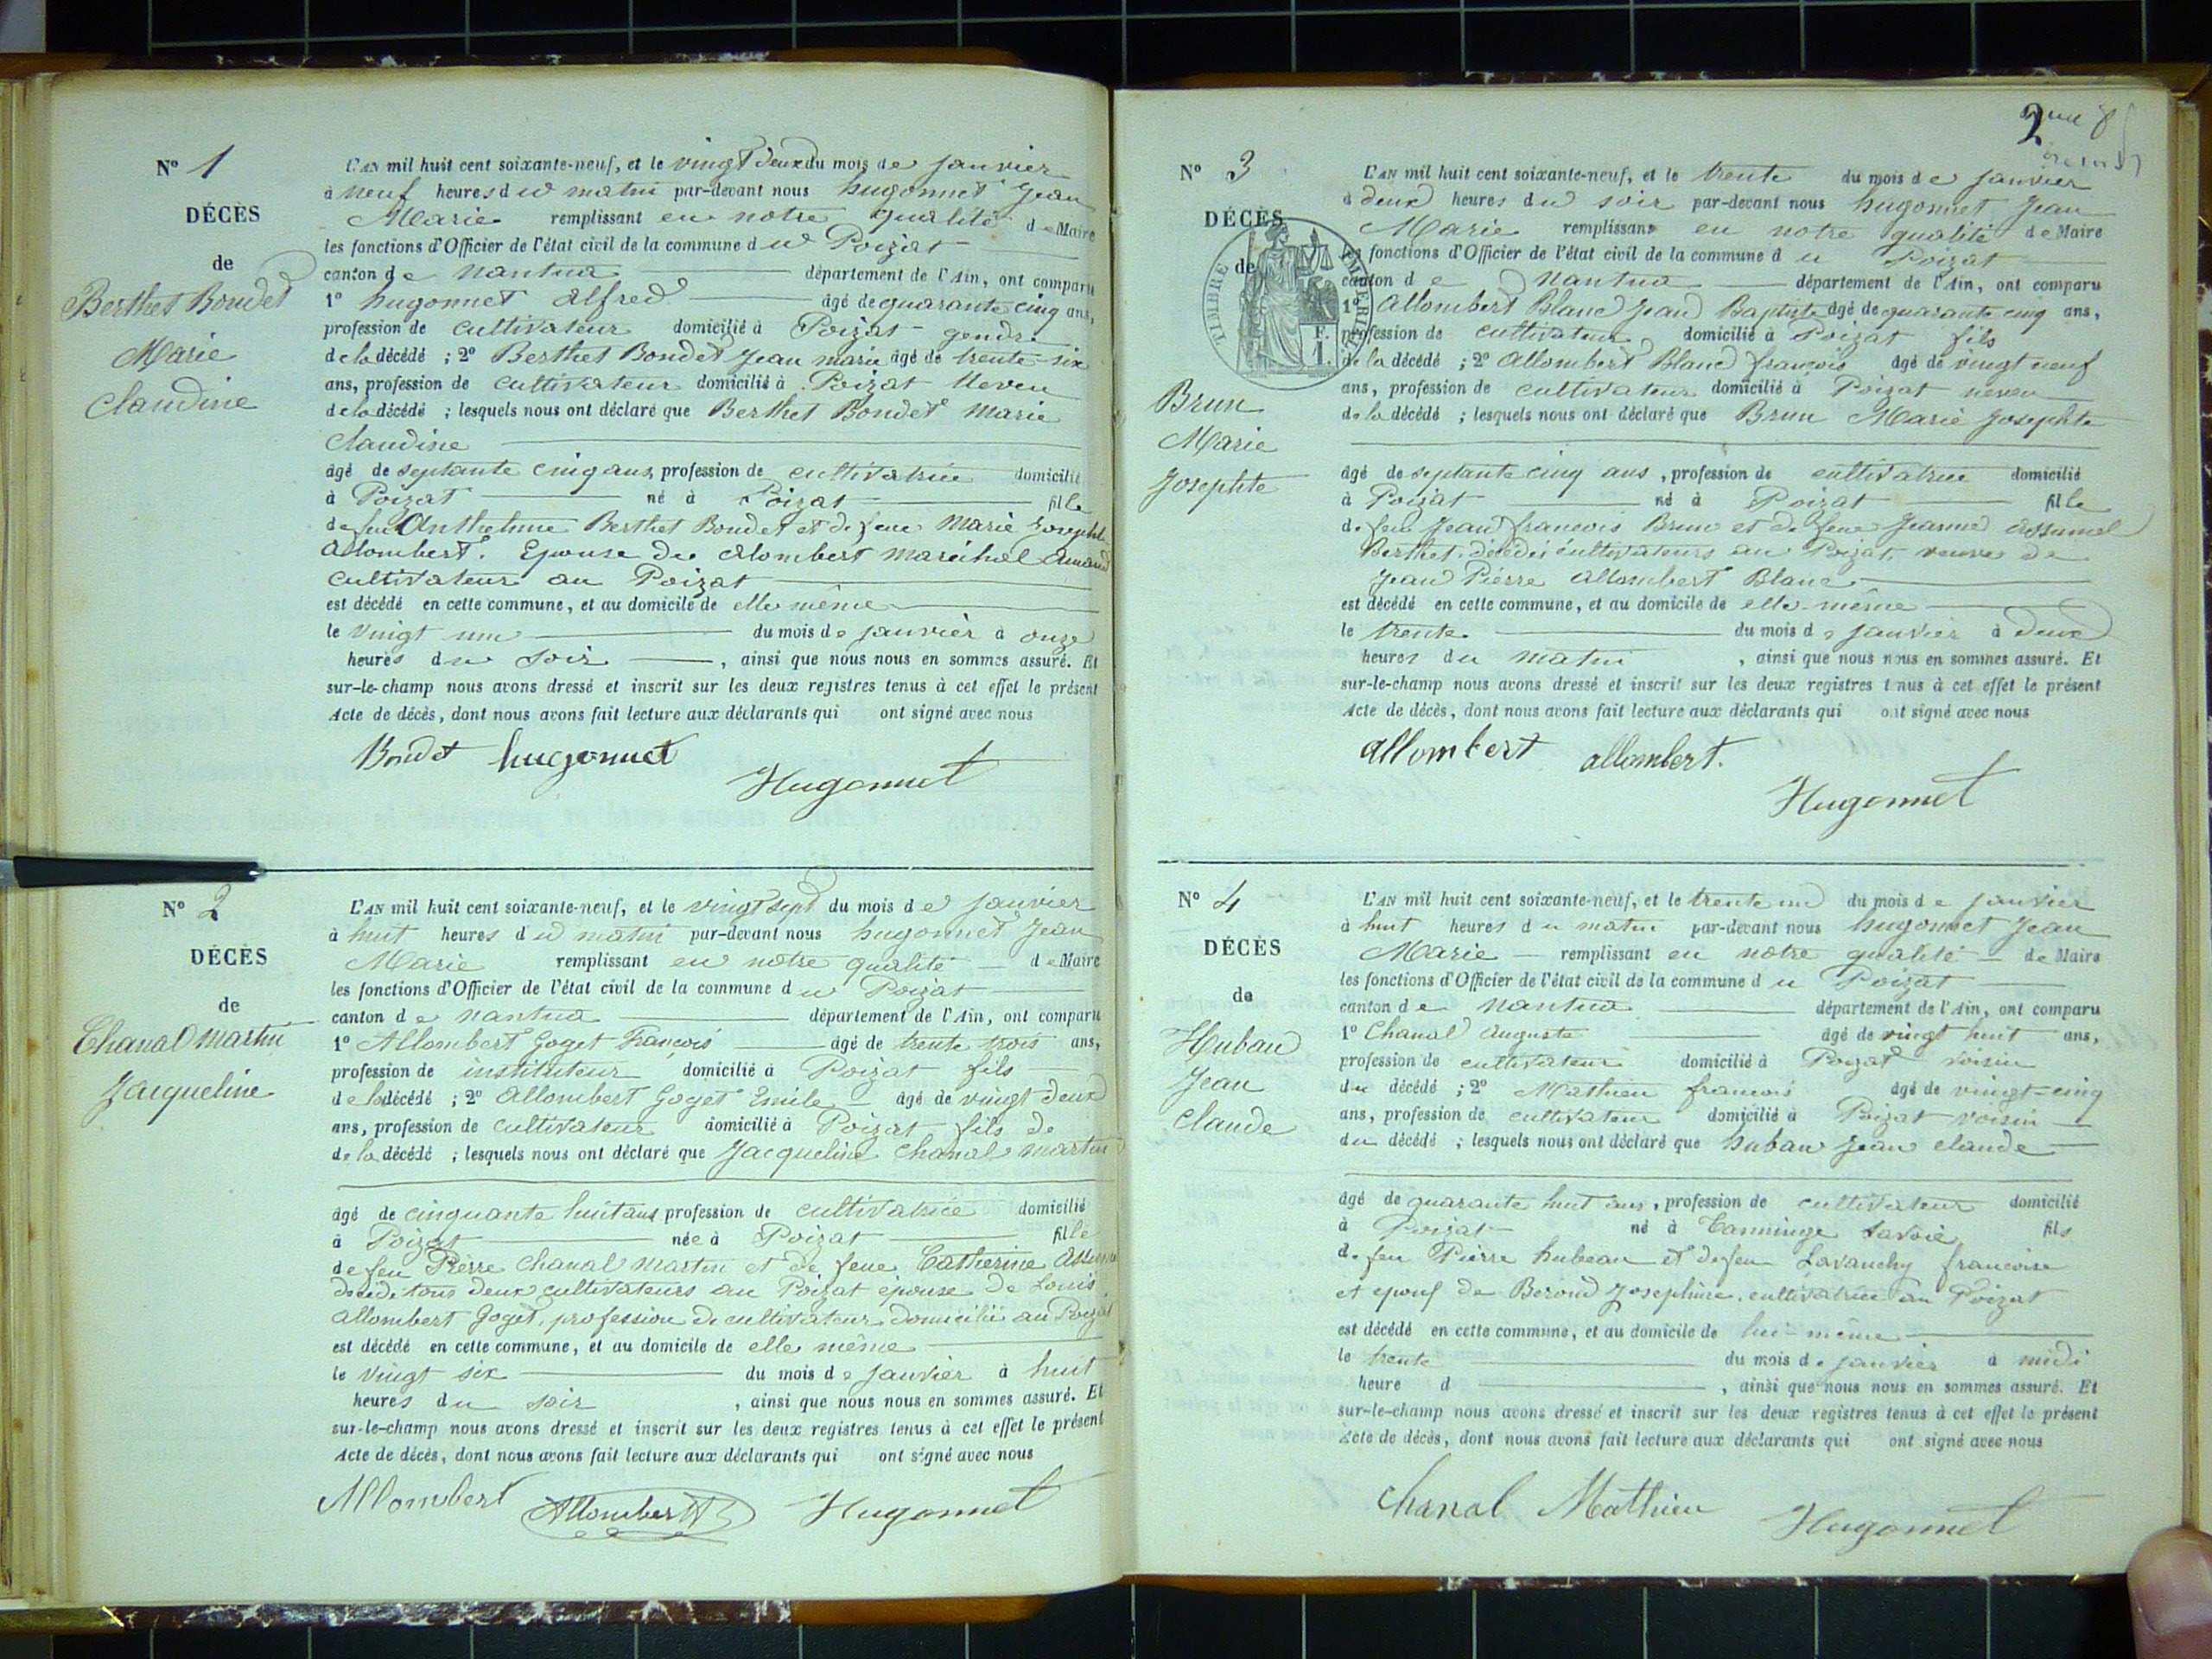 N° 1
DÉCÈS
de
Berthet Bondet
Marie
Claudine
L'AN mil huit cent soixante-neuf, et le vingt deux du mois de janvier
à neuf heures du matin par-devant nous hugonnet Jean
Marie remplissant en notre qualité de Maire
les fonctions d'Officier de l'état civil de la commune du Poizat
canton de Nantua département de l'Ain, ont comparu
1° hugonnet Alfred âgé de quarante cinq ans,
profession de cultivateur domicilié à Poizat gendre
de la décédé ; 2° Berthet Bondet Jean marie âgé de trente-six
ans, profession de cultivateur domicilié à Poizat Neveu
de la décédé ; lesquels nous ont déclaré que Berthet Bondet Marie
Claudine
âgé de septante cinq ans, profession de cultivatrice domicilié
à Poizat né à Poizat fille
de feu Anthelme Berthet Bondet et de feue Marie Josephte
Allombert. Epouse de Alombert marechal Amand
cultivateur au Poizat
est décédé en cette commune, et au domicile de elle même
le vingt un du mois de janvier à onze
heures du soir , ainsi que nous nous en sommes assuré. Et
sur-le-champ nous avons dressé et inscrit sur les deux registres tenus à cet effet le présent
Acte de décès, dont nous avons fait lecture aux déclarants qui ont signé avec nous
Bondet hugonnet
Hugonnet
N° 2
DÉCÈS
de
Chanal Martin
Jacqueline
L'AN mil huit cent soixante-neuf, et le vingt sept du mois de janvier
à huit heures du matin par-devant nous hugonnet Jean
Marie remplissant en notre qualité de Maire
les fonctions d'Officier de l'état civil de la commune du Poizat
canton de Nantua département de l'Ain, ont comparu
1° Allombert Goget François âgé de trente trois ans,
profession de instituteur domicilié à Poizat fils
de la décédé ; 2° Allombert Goget Emile âgé de vingt deux
ans, profession de cultivateur domicilié à Poizat fils de
de la décédé ; lesquels nous ont déclaré que Jacqueline Chanal martin
âgé de cinquante huit ans profession de cultivatrice domicilié
à Poizat née à Poizat fille
de feu Pierre Chanal Martin et de feue Catherine
décédé tous deux cultivateurs au Poizat épouse de Louis
Allombert Goget, profession de cultivateur domicilié au Poizat
est décédé en cette commune, et au domicile de elle même
le vingt six du mois de janvier à huit
heures du soir , ainsi que nous nous en sommes assuré. Et
sur-le-champ nous avons dressé et inscrit sur les deux registres tenus à cet effet le présent
Acte de décès, dont nous avons fait lecture aux déclarants qui ont signé avec nous
Allombert Allombert Hugonnet
2
N° 3
DÉCÈS
de
TIMBRE IMPÉRIAL
1 F.
Brun
Marie
Josephte
L'AN mil huit cent soixante-neuf, et le trente du mois de janvier
à deux heures du soir par-devant nous hugonnet Jean
Marie remplissant en notre qualité de Maire
les fonctions d'Officier de l'état civil de la commune du Poizat
canton de Nantua département de l'Ain, ont comparu
1° Allombert Blanc Jean Baptiste âgé de quarante cinq ans,
profession de cultivateur domicilié à Poizat fils
de la décédé ; 2° Allombert Blanc françois âgé de vingt neuf
ans, profession de cultivateur domicilié à Poizat neveu
de la décédé ; lesquels nous ont déclaré que Brun Marie Josephte
âgé de septante cinq ans, profession de cultivatrice domicilié
à Poizat né à Poizat fille
de feu Jean françois Brun et de feue Jeanne Assumel
Berthet, décédés cultivateurs au Poizat, veuve de
Jean Pierre Allombert Blanc
est décédé en cette commune, et au domicile de elle-même
le trente du mois de janvier à deux
heures du matin , ainsi que nous nous en sommes assuré. Et
sur-le-champ nous avons dressé et inscrit sur les deux registres tenus à cet effet le présent
Acte de décès, dont nous avons fait lecture aux déclarants qui ont signé avec nous
allombert allombert.
Hugonnet
N° 4
DÉCÈS
de
Hubau
Jean
Claude
L'AN mil huit cent soixante-neuf, et le trente un du mois de janvier
à huit heures du matin par-devant nous hugonnet Jean
Marie remplissant en notre qualité de Maire
les fonctions d'Officier de l'état civil de la commune du Poizat
canton de Nantua département de l'Ain, ont comparu
1° Chanal Auguste âgé de vingt huit ans,
profession de cultivateur domicilié à Poizat voisin
du décédé ; 2° Mathieu françois âgé de vingt-cinq
ans, profession de cultivateur domicilié à Poizat voisin
du décédé ; lesquels nous ont déclaré que hubau Jean claude
âgé de quarante huit ans, profession de cultivateur domicilié
à Poizat né à Tanninge Savoie fils
de feu Pierre hubeau et de feu Lavanchy francoise
et epouf de Beroud Josephine, cultivatrice au Poizat
est décédé en cette commune, et au domicile de lui-même
le trente du mois de janvier à midi
heure d , ainsi que nous nous en sommes assuré. Et
sur-le-champ nous avons dressé et inscrit sur les deux registres tenus à cet effet le présent
Acte de décès, dont nous avons fait lecture aux déclarants qui ont signé avec nous
Chanal Mathieu Hugonnet